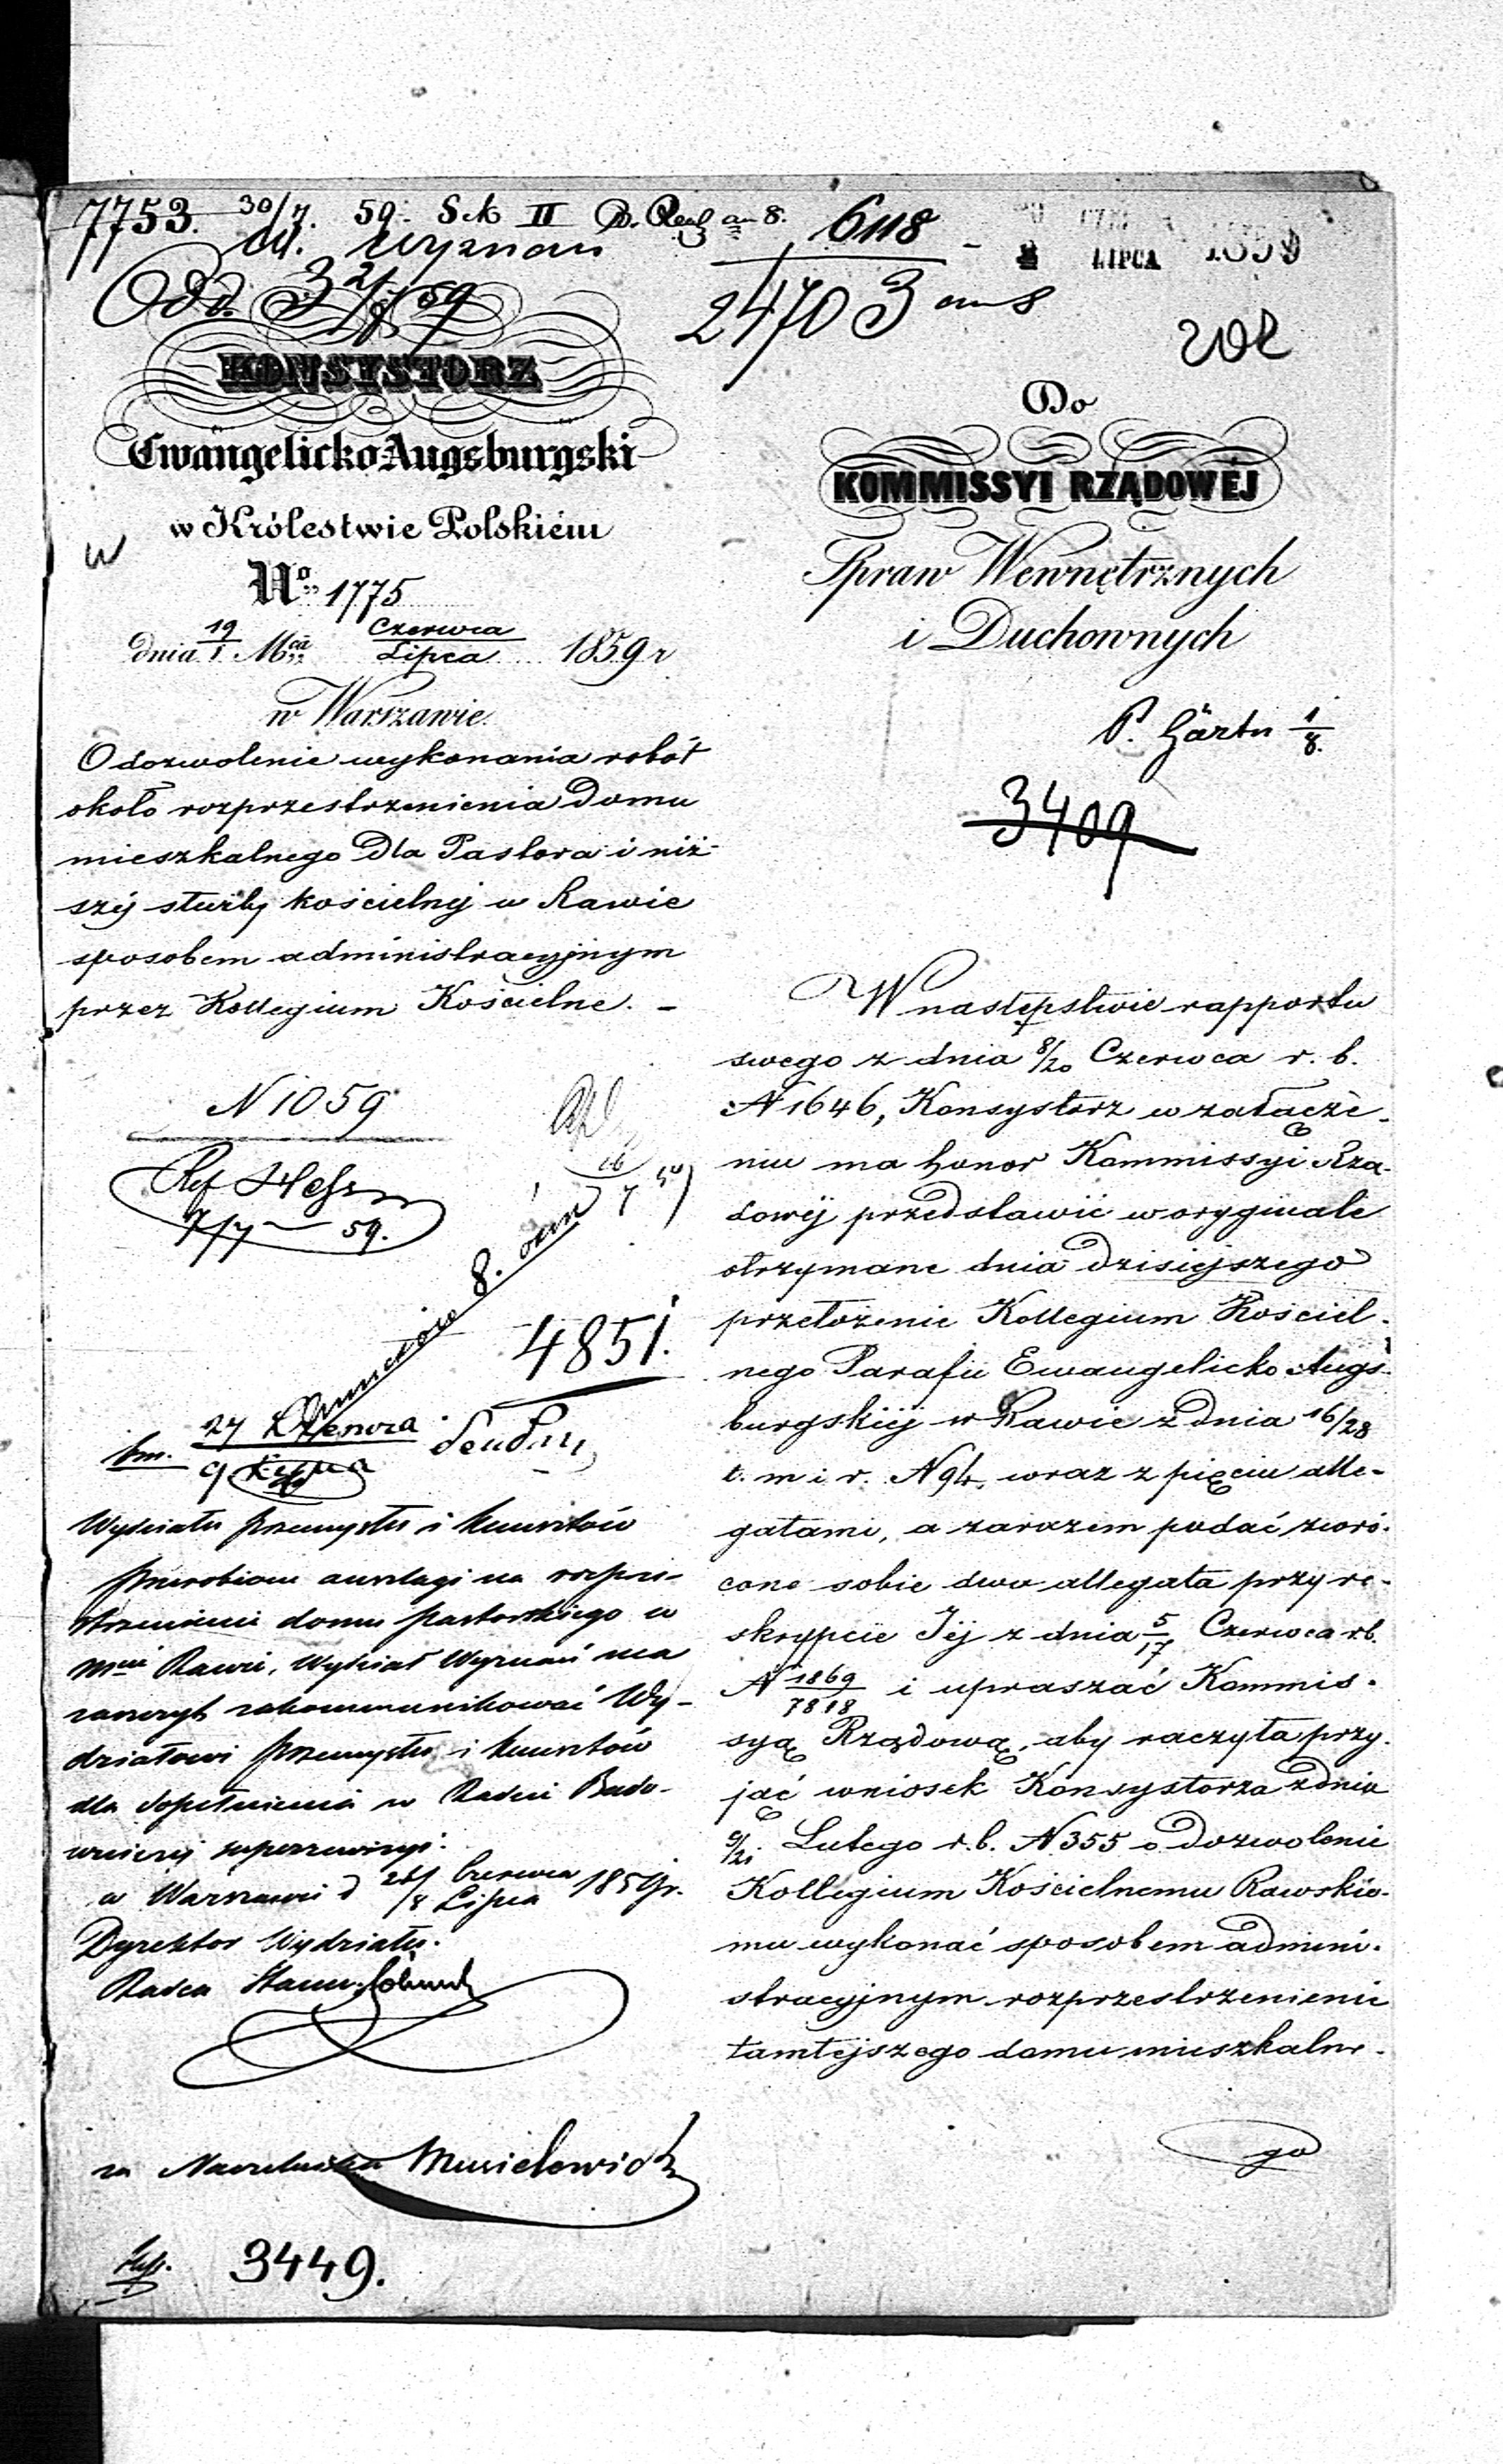 7753. 30/7. 59. Sek II
6118
LIPCA 1859
Wyznań
24703
KONSYSTORZ
Ewangelicko Augsburgski
w Królestwie Polskiém
No 1775
dnia 19/1 Mca Czerwca/Lipca 1859 r
w Warszawie.
O dozwolenie wykonania robót
około rozprzestrzenienia Domu
mieszkalnego Dla Pastora i niż-
széj służby kościelnéj w Rawie
sposobem administracyjnym
przez Kollegium Kościelne. –
N 1059
7/7 – 59.
4851.
27 Czerwca
9 Lipca
Wydziału Przemysłu i Kunsztów
domu pastorskiego w
Mcie Rawie, Wydział Wyznań ma
zaszczyt zakommunikować Wy-
działowi Przemysłu i Kunsztów
dla dopełnienia w Radzie Budo-
wniczéj superrewizyi.
w Warszawie d Czerwca/8 Lipca 1859 r.
Dyrektor Wydziału.
Radca Stanu
za Naczelnika
3449.
Do
KOMMISSYI RZĄDOWÉJ
Spraw Wewnętrznych
i Duchownych
P. Gärtn 1/8.
3409
W następstwie rapportu
swego z dnia 8/20 Czerwca r. b.
N 1646, Konsystorz w załącze-
niu ma honor Kommissyi Rzą-
dowéj przedstawić w oryginale
otrzymane dnia dzisiejszego
przełożenie Kollegium Kościel-
nego Parafii Ewangelicko Augs-
burgskiéj w Rawie z dnia 16/28
t. m i r. N 94, wraz z pięciu alle-
gatami, a zarazem podać zwró-
cone sobie dwa allegata przy re-
skrypcie Jéj z dnia 5/17 Czerwca r b.
N 1869/7818 i upraszać Kommis-
syą Rządową, aby raczyła przy-
jąć wniosek Konsystorza z dnia
9/21 Lutego r. b. N 355 o dozwolenie
Kollegium Kościelnemu Rawskie-
mu wykonać sposobem admini-
stracyjnym rozprzestrzenienie
tamtejszego domu mieszkalne-
go